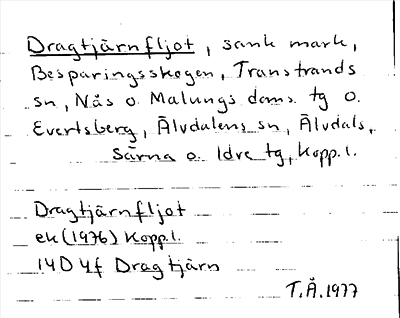 Dragtjärnfljot, sank mark,
Besparingsskogen, Transtrands
sn, Nås o Malungs doms. tg o.
Evertsberg, Älvdalens sn, Älvdals,
Särna o. Idre tg, Kopp. l.
Dragtjärnfljot
ek (1976) Kopp. l.
14D 4f Dragtjärn
T.Å. 1977